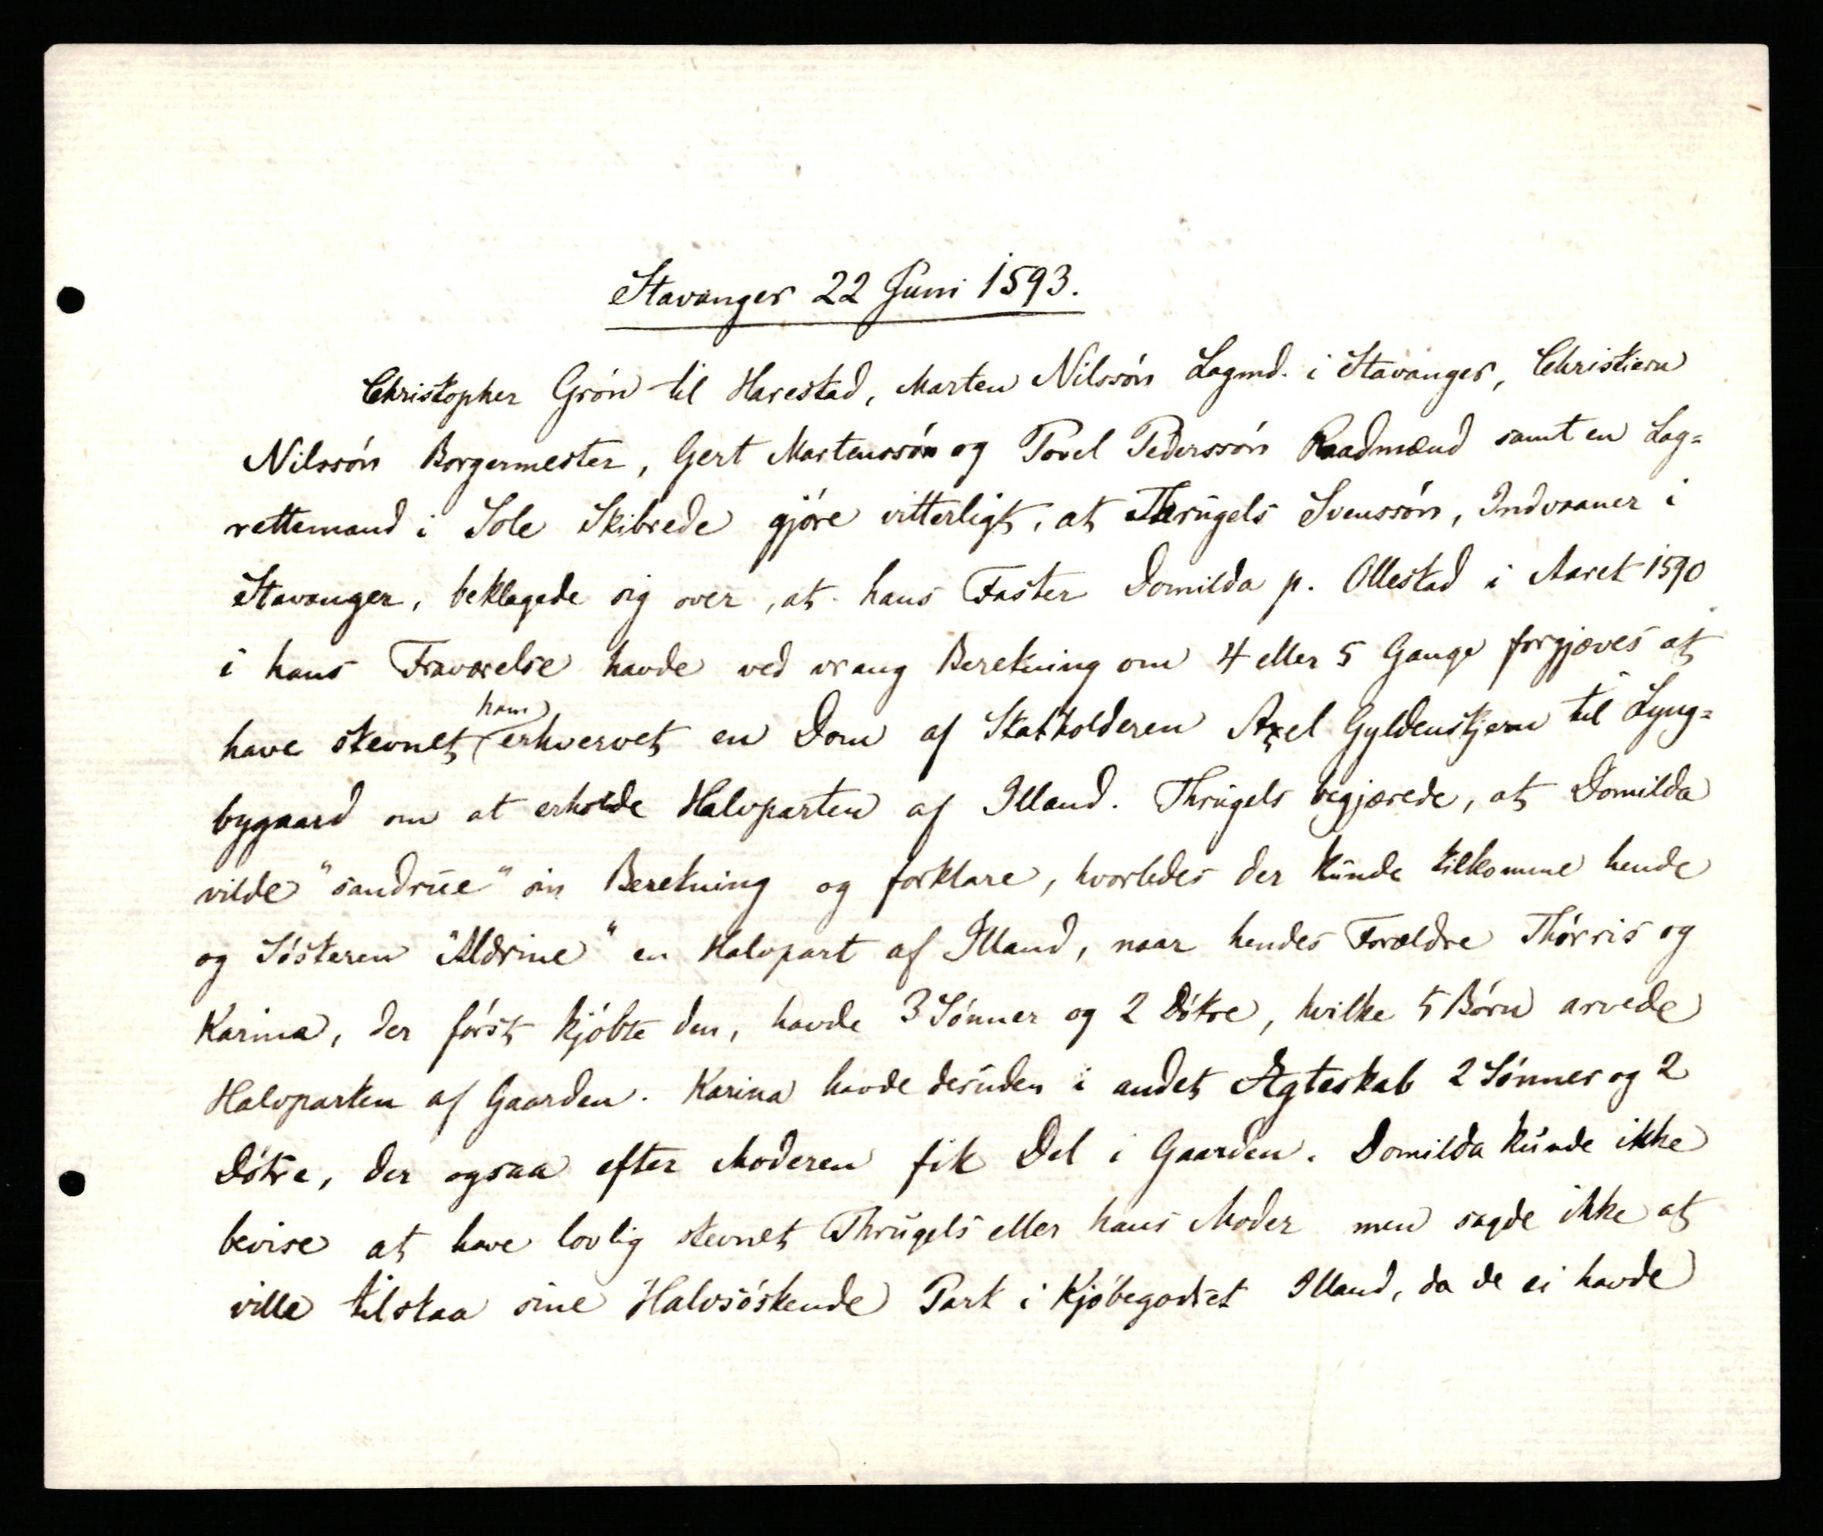 Stavanger 22 Juni 1593.
Christopher Grøn til Harestad, Marten Nilssøn Lagmd. i Stavanger, Christiern
Nilssøn Borgermester, Gert Martenssøn og Povel Pederssøn Raadmænd samt en Lag=
rettemand i Sole Skibrede gjøre vitterligt, at Thrugels Svenssøn, Indvaaner i
Stavanger, beklagede sig over, at hans Faster Domilda p. Ollestad i Aaret 1590
i hans Fraværelse havde ved vrang Beretning om 4 eller 5 Gange forgjæves at
have stevnet ham erhvervet en Dom af Statholderen Axel Gyldenstjern til Lyng=
bygaard om at erholde Halvparten af Illand. Thrugels begjærede, at Domilda
vilde "sandrue" sin Beretning og forklare, hvorledes der kunde tilkomme hende
og Søsteren "Aldrine" en Halvpart af Illand, naar hendes Forældre Thørris og
Karina, der først kjøbte den, havde 3 Sønner og 2 Døtre, hvilke 5 Børn arvede
Halvparten af Gaarden. Karina havde desuden i andet Ægteskab 2 Sønner og 2
Døtre, der ogsaa efter Moderen fik Del i Gaarden. Domilda kunde ikke
bevise at have lovlig stevnet Thrugels eller hans Moder men sagde ikke at
ville tilstaa sine Halvsøskende Part i Kjøbegodset Illand, da de ei havde